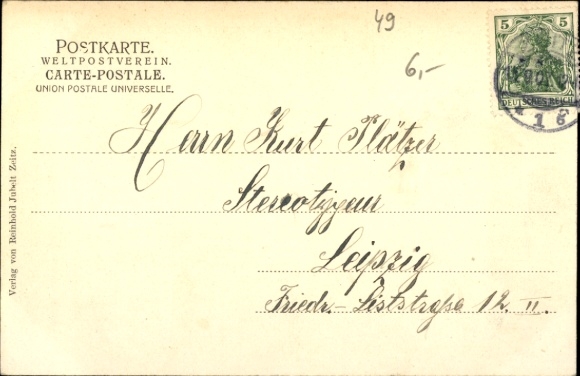 49
6,-
5 5
DEUTSCHES REICH
1 6
POSTKARTE.
WELTPOSTVEREIN.
CARTE-POSTALE.
UNION POSTALE UNIVERSELLE.
Herrn Kurt Plätzer
Stereotypeur
Leipzig
Friedr.-Liststraße 12. II.
Verlag von Reinhold Jubelt Zeitz.